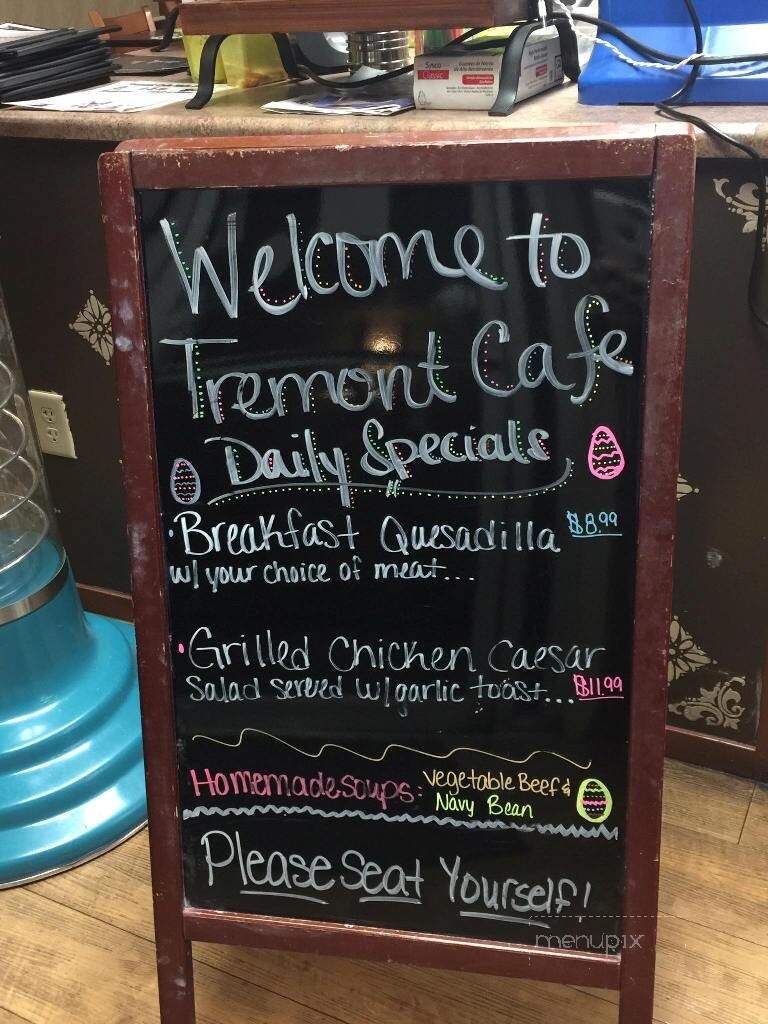 Sysco
Classic
Welcome to
Tremont Cafe
Daily Specials
·Breakfast Quesadilla $8.99
w/ your choice of meat...
·Grilled Chicken Caesar
Salad served w/ garlic toast... $11.99
Homemade soups: Vegetable Beef &
Navy Bean
Please Seat Yourself!
menupix